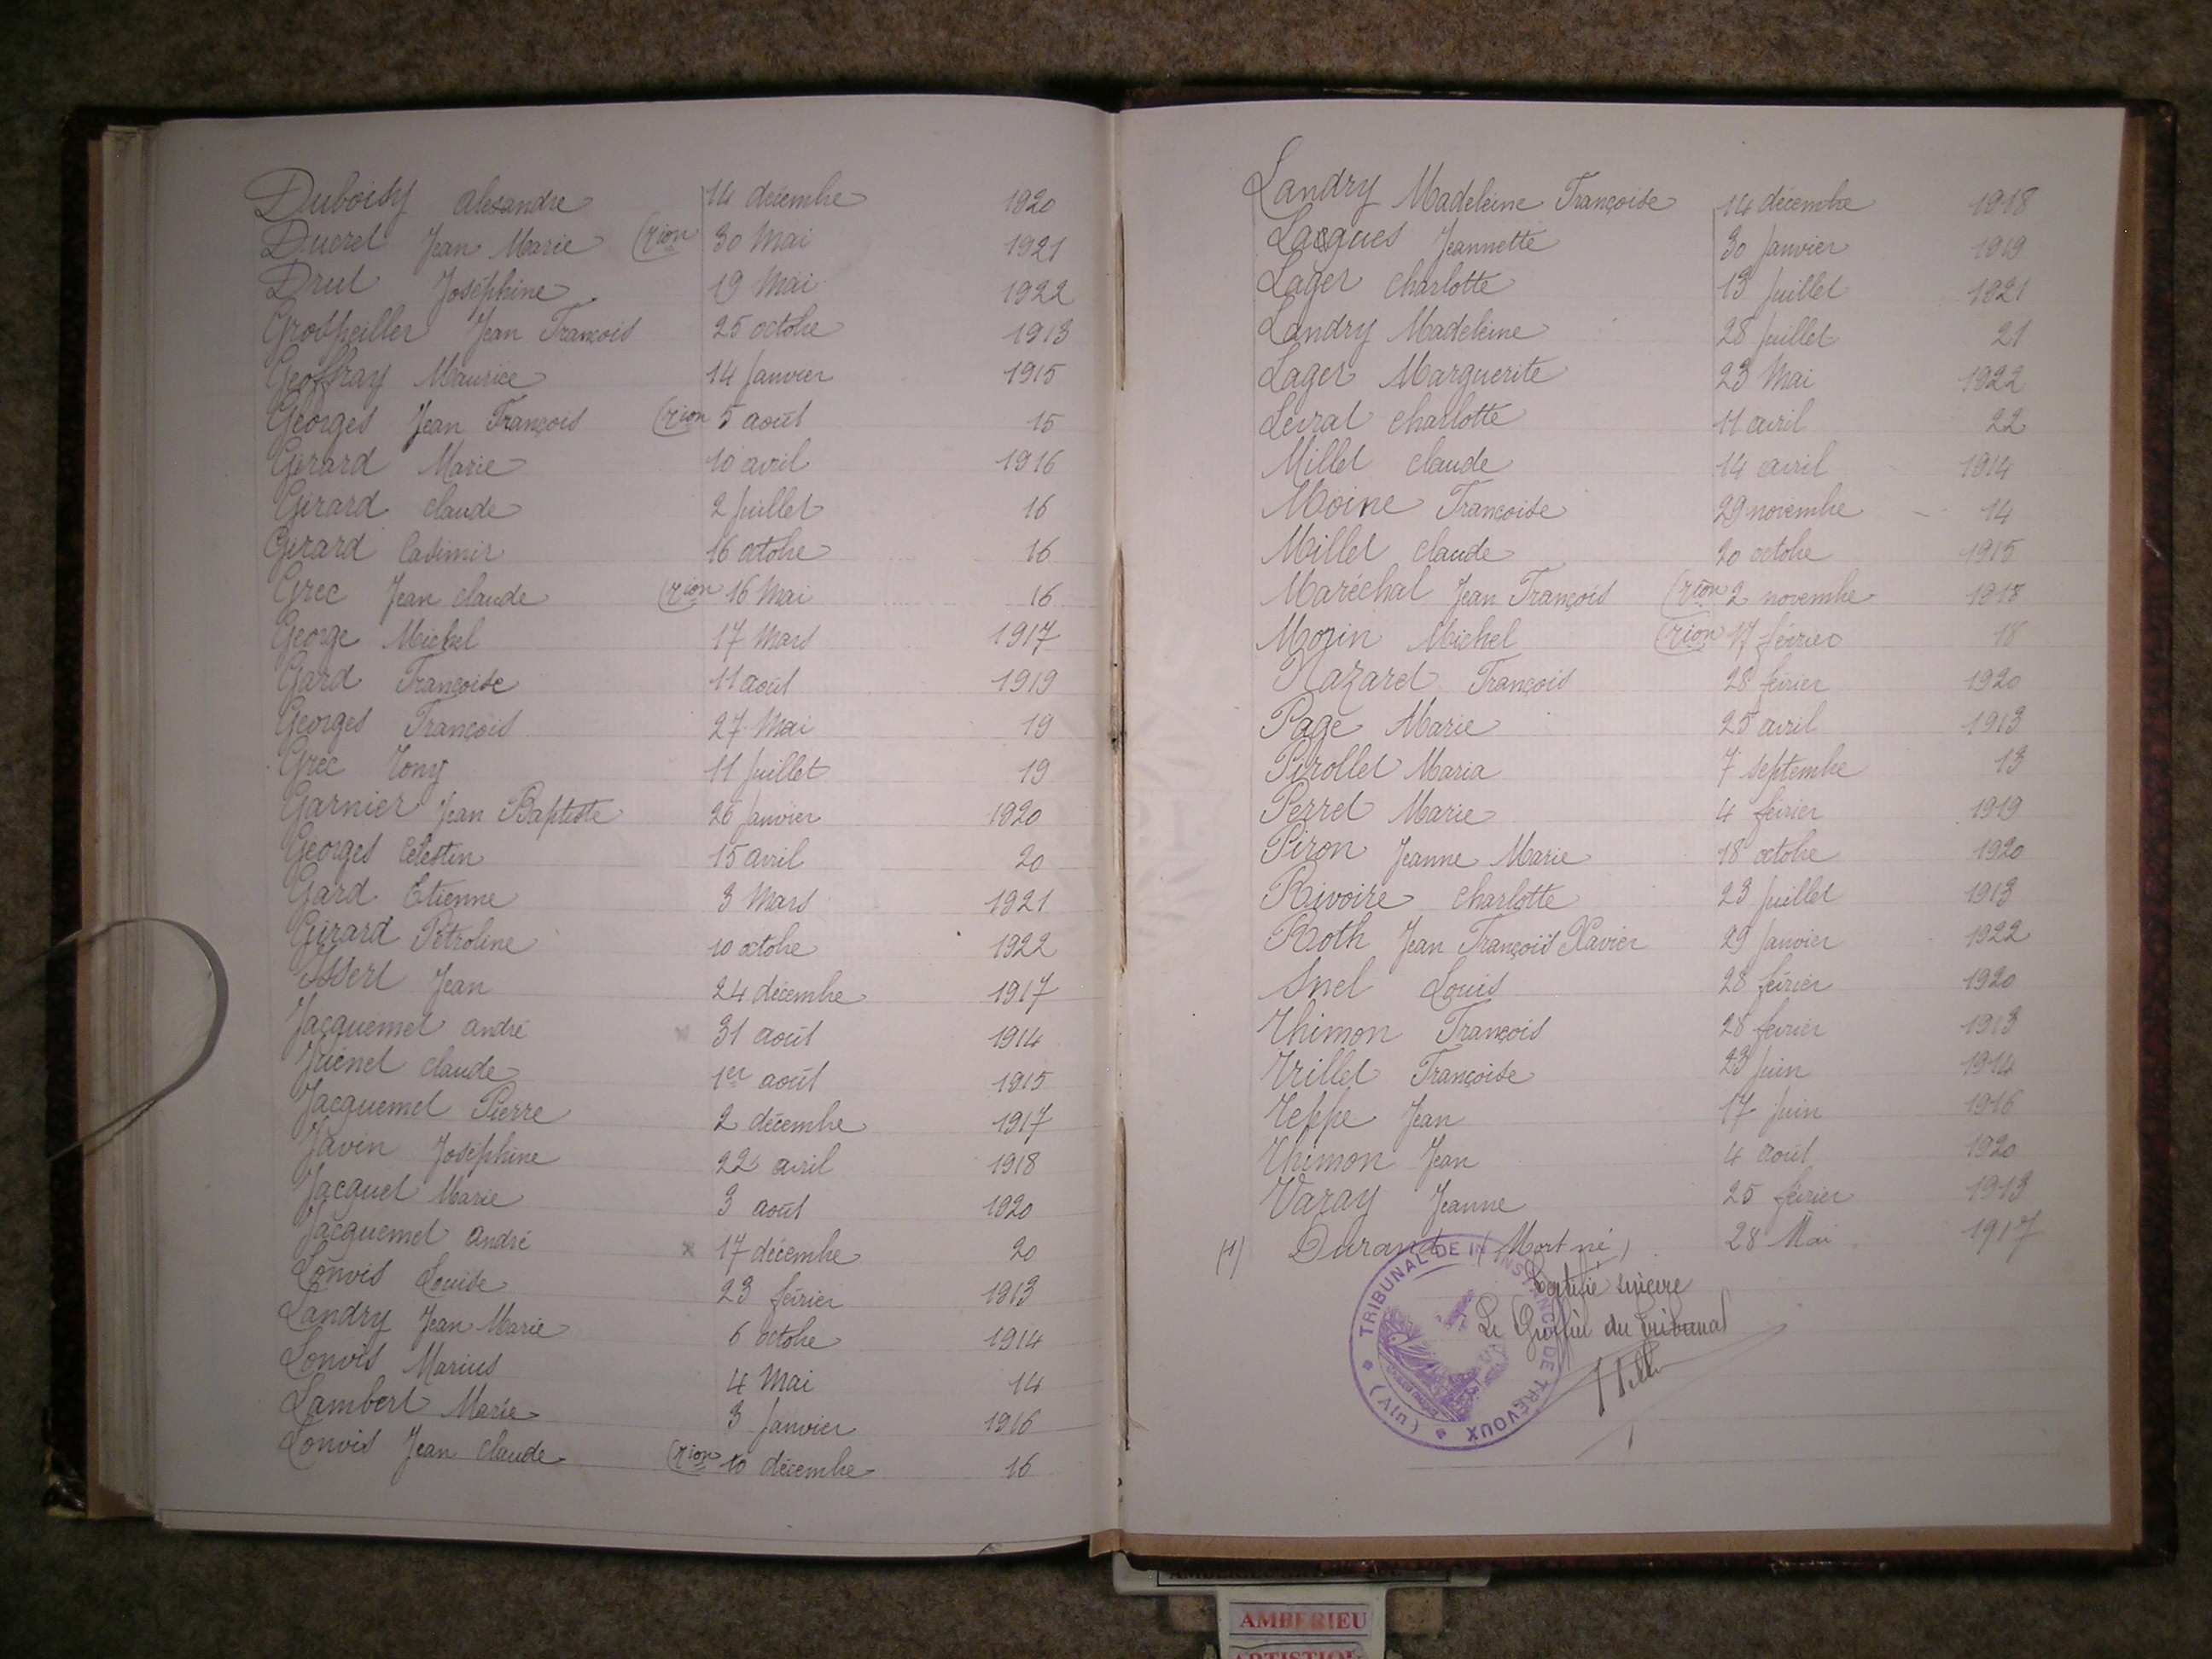 Duboisy Alexandre 14 décembre 1920
Ducret Jean Marie (rion 30 Mai 1921
Drut Joséphine 19 Mai 1922
Grosfeiller Jean François 25 octobre 1913
Geoffray Maurice 14 Janvier 1915
Georges Jean François (rion 5 août 15
Girard Marie 10 avril 1916
Girard Claude 2 Juillet 16
Girard Casimir 16 octobre 16
Grec Jean Claude (rion 16 Mai 16
George Michel 17 Mars 1917
Gard Françoise 11 août 1919
Georges François 27 Mai 19
Grec Tony 11 Juillet 19
Garnier Jean Baptiste 26 Janvier 1920
Georges Célestin 15 avril 20
Gard Etienne 3 Mars 1921
Girard Pétroline 10 octobre 1922
Jean 24 décembre 1917
Jacquemet André 31 août 1914
Claude 1er août 1915
Jacquemet Pierre 2 décembre 1917
Javin Joséphine 22 avril 1918
Jacquet Marie 3 août 1920
Jacquemet André x 17 décembre 20
Lonvis Louise 23 février 1913
Landry Jean Marie 6 octobre 1914
Lonvis Marius 4 Mai 14
Lambert Marie 3 Janvier 1916
Lonvis Jean Claude (rion 10 décembre 16
Landry Madeleine Françoise 14 décembre 1918
Lacques Jeannette 30 Janvier 1919
Lager Charlotte 13 Juillet 1921
Landry Madeleine 28 Juillet 21
Lager Marguerite 23 Mai 1922
Levrat Charlotte 11 avril 22
Millet Claude 14 avril 1914
Moine Françoise 29 novembre 14
Millet Claude 20 octobre 1915
Maréchal Jean François (rion 2 novembre 1918
Morin Michel (rion 17 février 18
Nazaret François 28 février 1920
Page Marie 25 avril 1913
Pirollet Maria 7 septembre 13
Perret Marie 4 février 1919
Piron Jeanne Marie 18 octobre 1920
Rivoire Charlotte 23 Juillet 1913
Roth Jean François Xavier 29 Janvier 1922
Snel Louis 28 février 1920
Thimon François 28 février 1913
Trillet Françoise 23 Juin 1914
Teppe Jean 17 Juin 1916
Thimon Jean 4 août 1920
Varay Jeanne 25 février 1913
(1) Durand (Mort né) 28 Mai 1917
Certifié sincère
Le Greffier du tribunal
TRIBUNAL DE 1ÈRE INSTANCE DE TRÉVOUX (AIN)
AMBERIEU